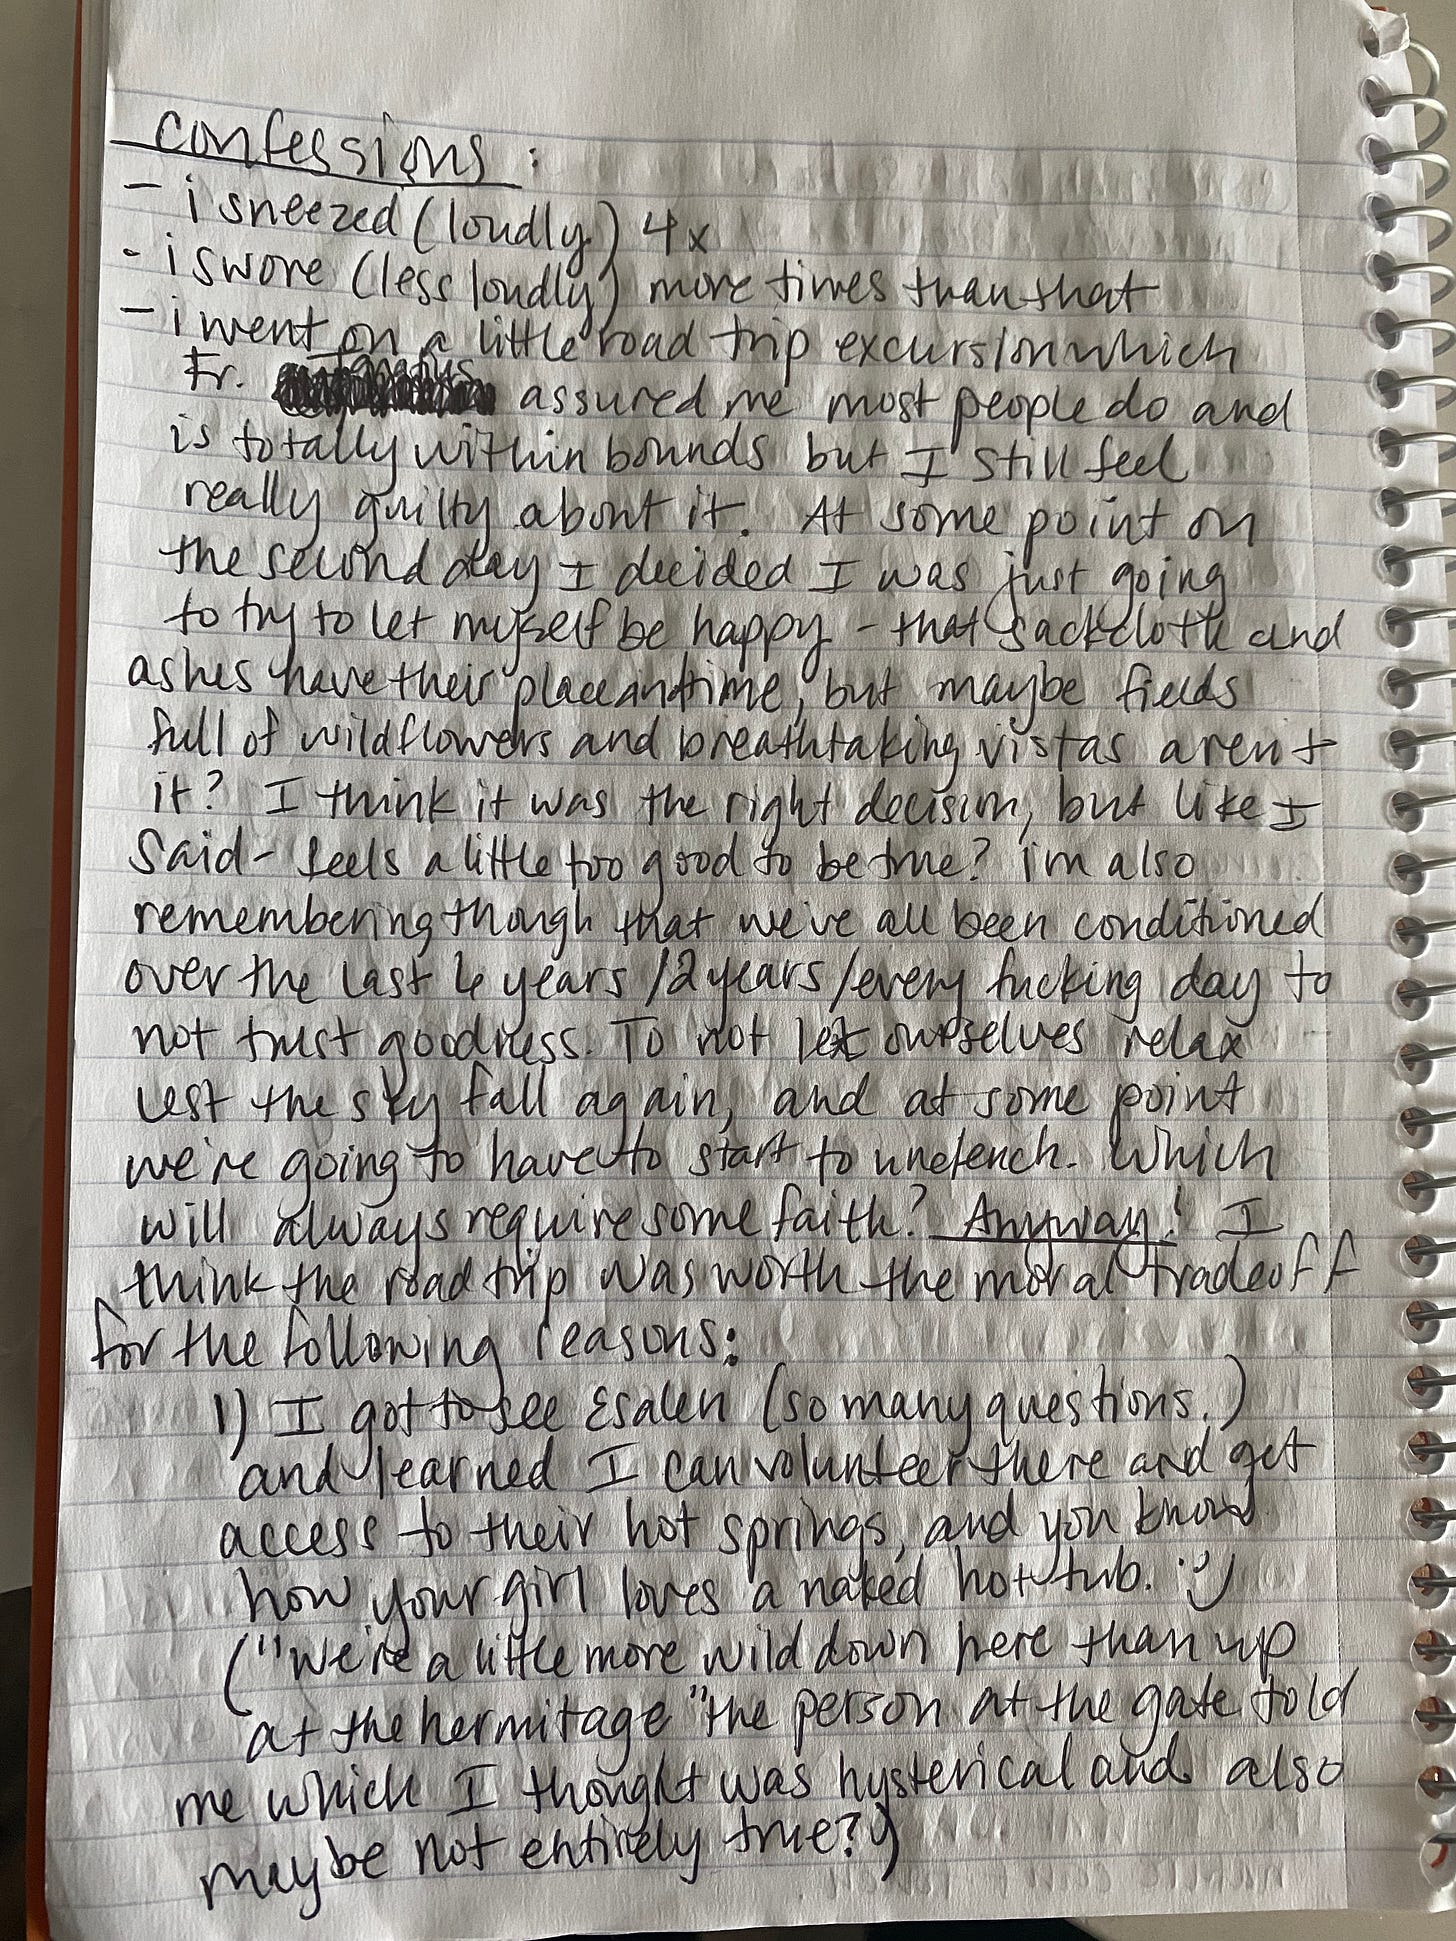 confessions:
- i sneezed (loudly) 4x
- i swore (less loudly) more times than that
- i went on a little road trip excursion which
Fr. assured me most people do and
is totally within bounds but I still feel
really guilty about it. At some point on
the second day I decided I was just going
to try to let myself be happy - that sackcloth and
ashes have their place and time, but maybe fields
full of wildflowers and breathtaking vistas aren't
it? I think it was the right decision, but like I
said - feels a little too good to be true? i'm also
remembering though that we've all been conditioned
over the last 4 years /2 years /every fucking day to
not trust goodness. To not let ourselves relax
lest the sky fall again, and at some point
we're going to have to start to unclench. Which
will always require some faith? Anyway! I
think the road trip was worth the moral tradeoff
for the following reasons:
1) I got to see Esalen (so many questions.)
and learned I can volunteer there and get
access to their hot springs, and you know
how your girl loves a naked hot tub. :)
("We're a little more wild down here than up
at the hermitage" the person at the gate told
me which I thought was hysterical and also
maybe not entirely true?)